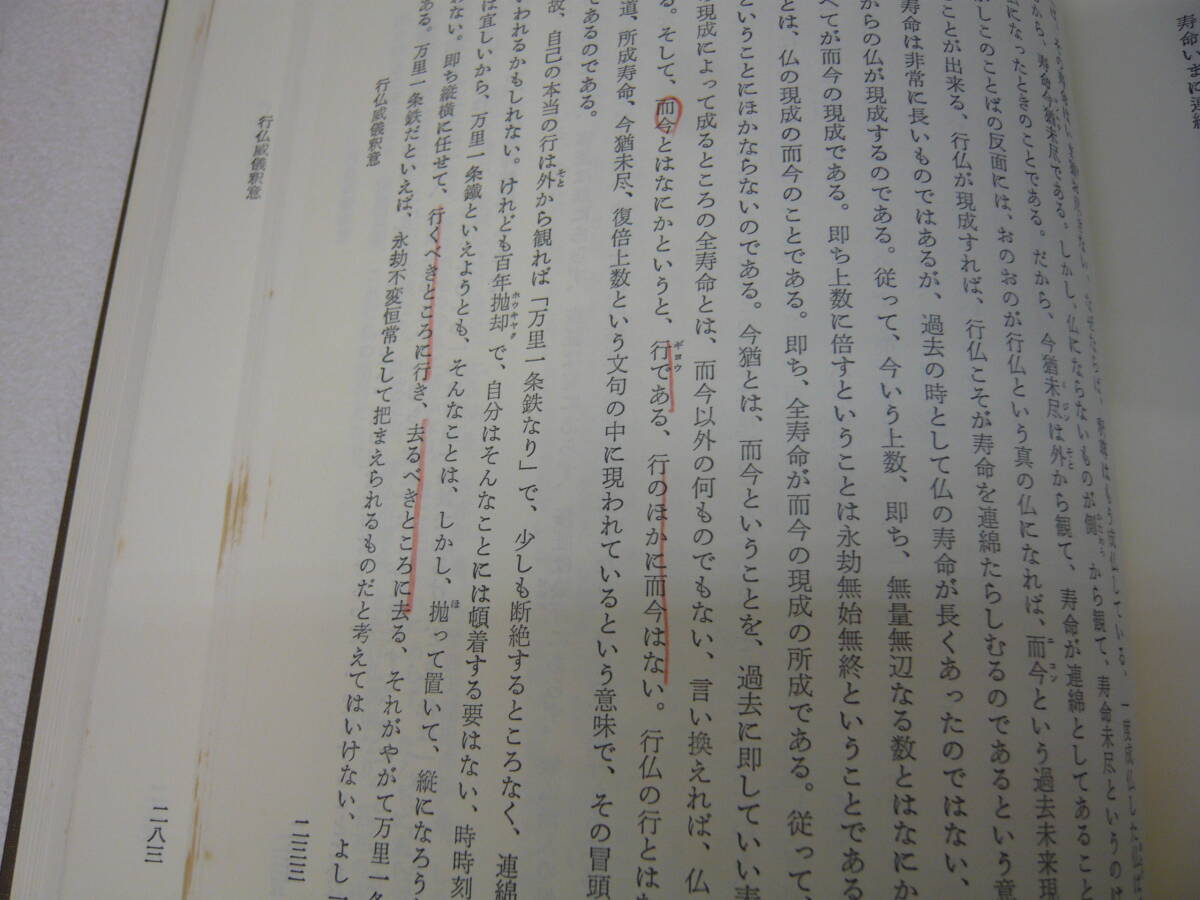 寿命いまに連綿
は、その寿命はいまだ尽きない、なぜならば、釈迦はもう成仏している、一度成仏した仏は
から、寿命今猶未尽である。しかし、仏にならないものが側から観て、寿命未尽というのは
になったときのことである。だから、今猶未尽は外から観て、寿命が連綿としてあること
しこのことばの反面には、おのおのが行仏という真の仏になれば、而今という過去未来現
ことが出来る、行仏が現成すれば、行仏こそが寿命を連綿たらしむるのであるという意
寿命は非常に長いものではあるが、過去の時として仏の寿命が長くあったのではない、
からの仏が現成するのである。従って、今いう上数、即ち、無量無辺なる数とはなにか
べてが而今の現成である。即ち上数に倍すということは永劫無始無終ということである
とは、仏の現成の而今のことである。即ち、全寿命が而今の現成の所成である。従って、
ということにほかならないのである。今猶とは、而今ということを、過去に即していい表
の現成によって成るところの全寿命とは、而今以外の何ものでもない、言い換えれば、仏
る。そして、而今とはなにかというと、行である、行のほかに而今はない。行仏の行とは
道、所成寿命、今猶未尽、復倍上数という文句の中に現われているという意味で、その冒頭
であるのである。
故、自己の本当の行は外から観れば「万里一条鉄なり」で、少しも断絶するところなく、連綿
いわれるかもしれない。けれども百年抛却で、自分はそんなことには頓着する要はない、時時刻
は宜しいから、万里一条鐵といえようとも、そんなことは、しかし、抛って置いて、縦になろう
わない。即ち縦横に任せて、行くべきところに行き、去るべきところに去る、それがやがて万里一条
ある。万里一条鉄だといえば、永劫不変恒常として把まえられるものだと考えてはいけない、よし一
行仏威儀釈意
二三三
行仏威儀釈意
二八三